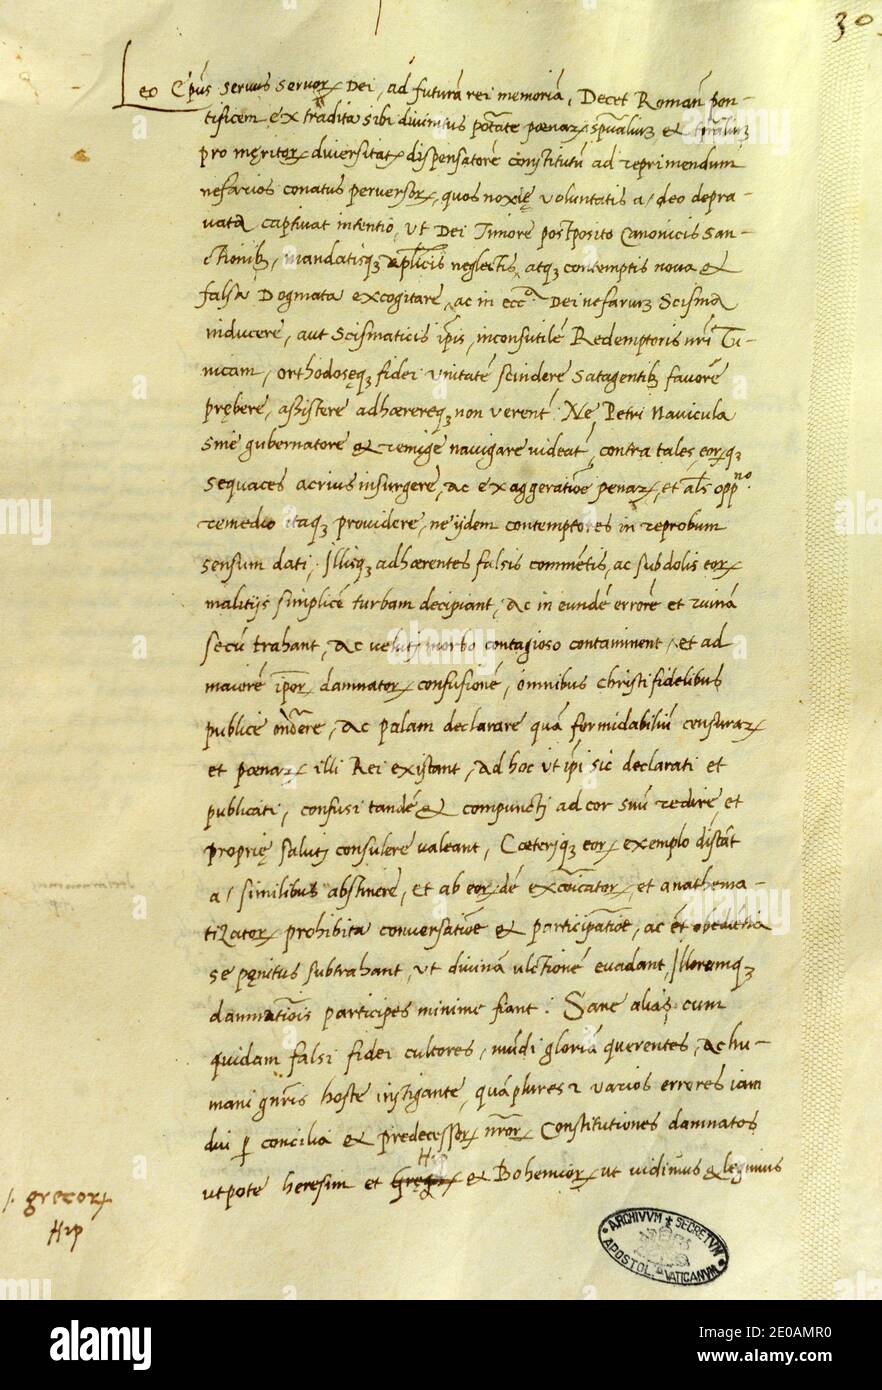 30
Leo Ep̃us servus servoꝝ Dei, ad futurã rei memoriã, Decet Romañ pon-
tificem ex tradita sibi divinitus potãte pœnaꝝ, sp̃ualiuꝫ et tp̃aliuꝫ
pro meritoꝝ diversitatꝭ dispensatorẽ constitutũ ad reprimendum
nefarios conatus perversoꝝ, quos noxię voluntatis a/deo depra-
vata captivat intentio, ut Dei timore postposito Canonicis San-
ctionibꝫ, mandatisqꝫ ap̃licis neglectis, atqꝫ contemptis nova et
falsa Dogmata excogitare, ac in ecc̃a Dei nefariuꝫ Scisma
inducere, aut Scismaticis ip̃is, inconsutilẽ Redemptoris nr̃i Tu-
nicam, orthodoxęqꝫ fidei unitatẽ scindere satagentibꝫ favorẽ
prębere, assistere adhærereqꝫ non verent̃: Ne Petri Navicula
sine gubernatore et remige navigare videat̃, contra tales, eoꝝqꝫ
sequaces acrius insurgere, ac exaggeratiõe penaꝝ, et al̃s opp̃no.
remedio itaqꝫ providere, ne ijdem contemptores in reprobum
sensum dati, Illisqꝫ adhærentes falsis commẽtis, ac subdolis eoꝝ
malitijs simplicẽ turbam decipiant, ac in eundẽ errorẽ et ruinã
secũ trahant, ac veluti morbo contagioso contaminent, et ad
maiorẽ ip̃oꝝ damnatoꝝ confusionẽ, omnibus Christi fidelibus
publice onðere, ac palam declarare quã formidabiliũ censuraꝝ
et pœnaꝝ illi Rei existant, ad hoc ut ip̃i sic declarati et
publicati, confusi tandẽ et compuncti ad cor suũ redire, et
proprię saluti consulere valeant, Cœteriqꝫ eoꝝ exemplo discãt
a/ similibus abstinere, et ab eoꝝdẽ excõicatoꝝ, et anathema-
tizatoꝝ prohibita conversatiõe et participatiõe, ac ẽt obedietia
se pęnitus subtrahant, ut divinã ultionẽ evadant, Illorumqꝫ
damnatiõis participes minime fiant: Sane alias cum
quidam falsi fidei cultores, mũdi gloriã querentes, ac hu-
mani gñris hoste instigante, quãplures & varios errores iam
diu ꝑ concilia et predecessoꝝ nr̃oꝝ Constitutiones damnatos
Hip
utpote heresim et Gręcoꝝ et Bohemicoꝝ ut vidimus & legimus
/. grecoꝝ
Hip
ARCHIVVM SECRETVM
APOSTOL. VATICANVM
alamy
a
Image ID: 2E0AMR0
www.alamy.com